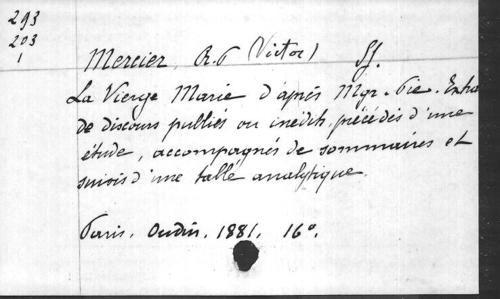 293
203
1
Mercier, R. P. (Victor) SJ.
La Vierge Marie d'après Mgr. Pie. Extra
de discours publiés ou inédits, précédés d'une
étude, accompagnés de sommaires et
suivis d'une table analytique.
Paris. Oudin. 1881. 16°.